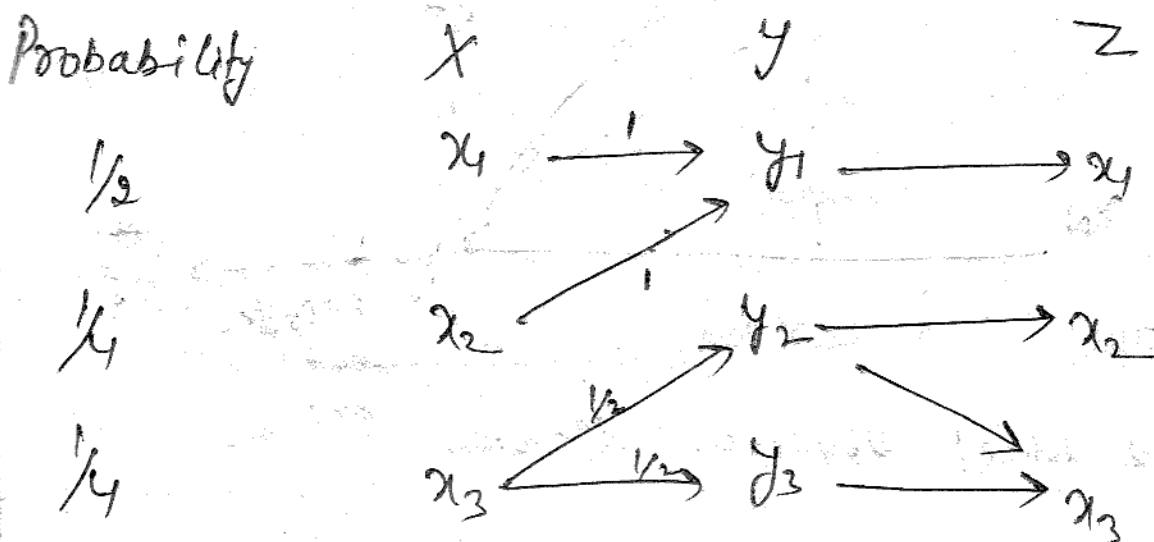 Probability X y Z
1/2 x1 1 y1 x1
1
1/4 x2 y2 x2
1/2
1/4 x3 1/2 y3 x3